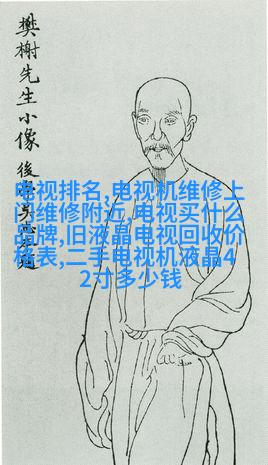 樊榭先生小像
後
电视排名,电视机维修上
门维修附近,电视买什么
品牌,旧液晶电视回收价
格表,二手电视机液晶4
2寸多少钱